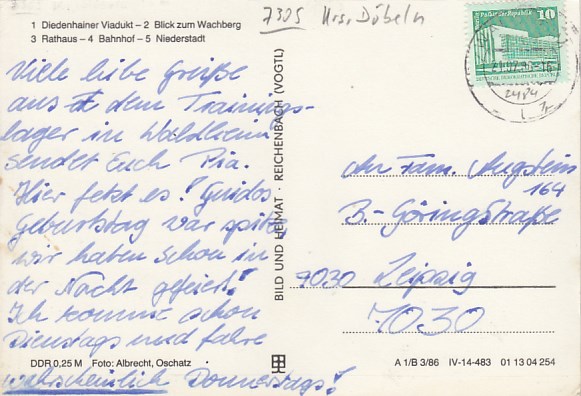 1 Diedenhainer Viadukt – 2 Blick zum Wachberg
3 Rathaus – 4 Bahnhof – 5 Niederstadt
7305 Krs. Döbeln
Palast der Republik 10
DEUTSCHE DEMOKRATISCHE REPUBLIK
Viele liebe Grüße
aus dem Trainings-
lager in Waldheim
sendet Euch Pia.
Hier fetzt es! Guidos
Geburtstag war spitze,
wir haben schon in
der Nacht gefeiert!
Ich komme schon
Dienstags und fahre
wahrscheinlich Donnerstags!
BILD UND HEIMAT · REICHENBACH (VOGTL)
An Fam. Augstein
B.-Göringstraße 164
7030 Leipzig
7030
DDR 0,25 M Foto: Albrecht, Oschatz
A 1/B 3/86 IV-14-483 01 13 04 254